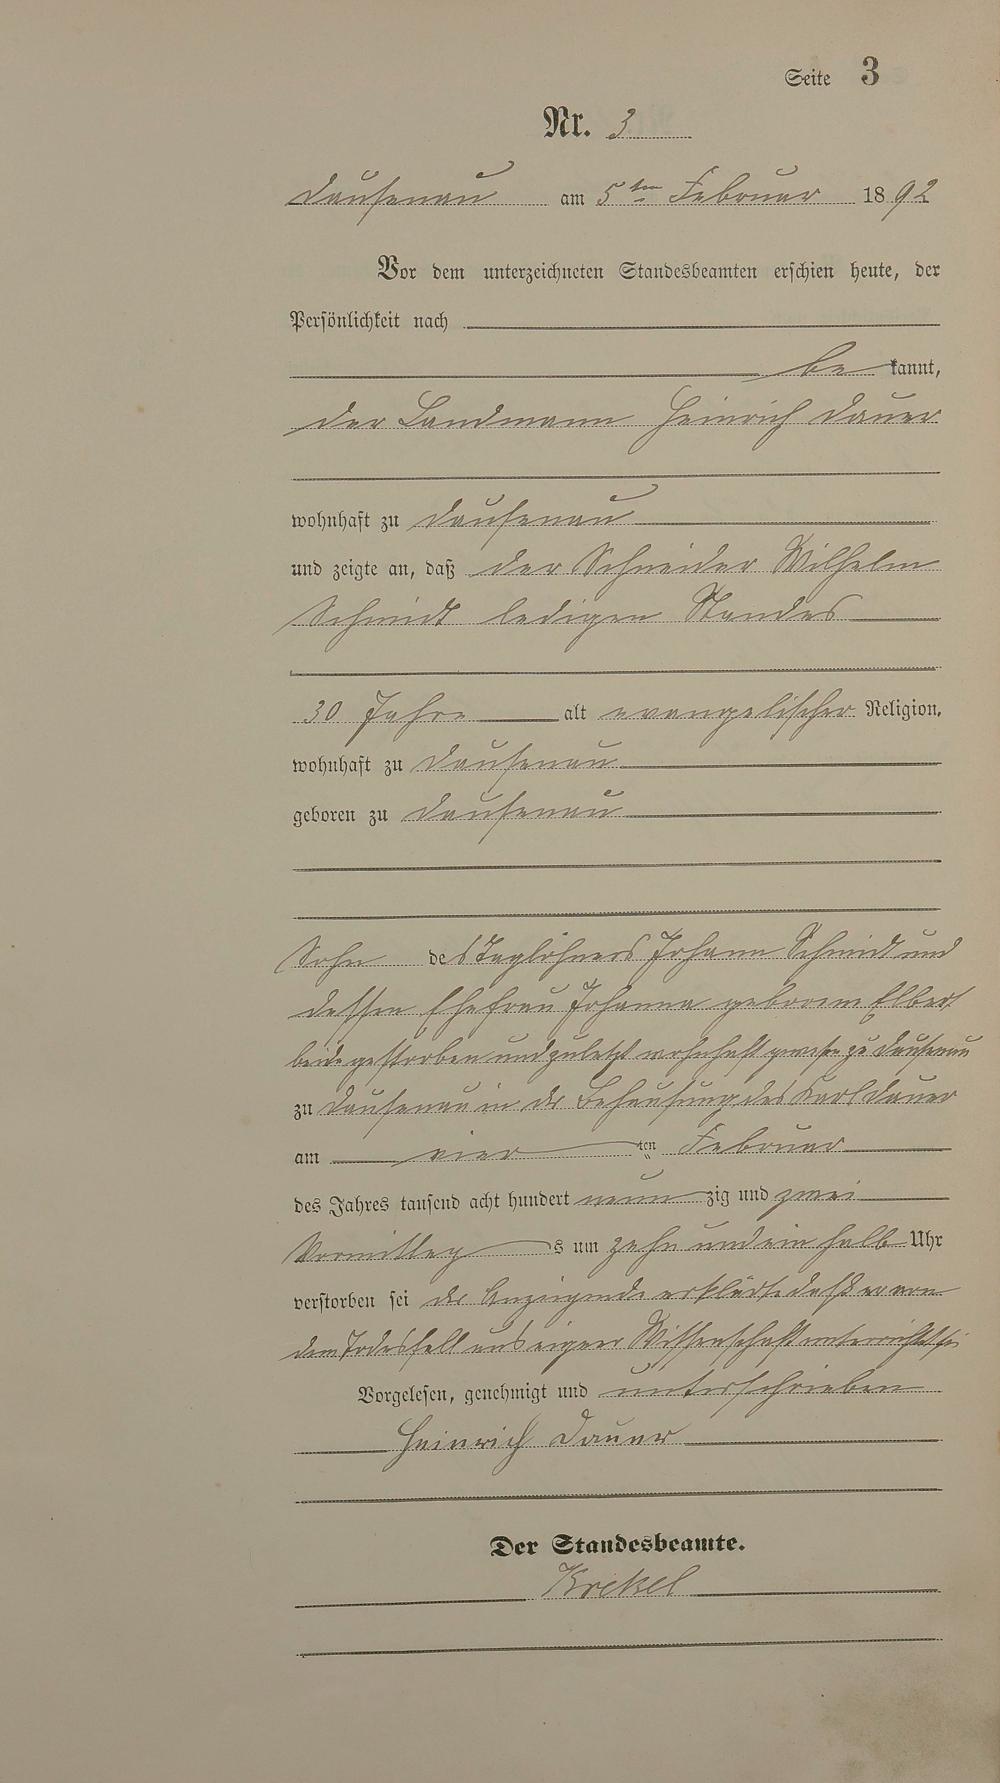 Seite 3
Nr. 3
Dausenau am 5ten Februar 1892
Vor dem unterzeichneten Standesbeamten erschien heute, der
Persönlichkeit nach
be kannt,
der Landmann Heinrich Dauer
wohnhaft zu Dausenau
und zeigte an, daß der Schneider Wilhelm
Schmidt ledigen Standes
30 Jahre alt evangelischer Religion,
wohnhaft zu Dausenau
geboren zu Dausenau
Sohn des Taglöhners Johann Schmidt und
dessen Ehefrau Johanna geborene Elbert
beide gestorben und zuletzt wohnhaft gewesen zu Dausenau
zu Dausenau in der Behausung des Karl Dauer
am vier ten Februar
des Jahres tausend acht hundert neunzig und zwei
Vormittags um zehn und ein halb Uhr
verstorben sei der Anzeigende erklärte daß er von
dem Todesfall aus eigner Wissenschaft unterrichtet sei
Vorgelesen, genehmigt und unterschrieben
Heinrich Dauer
Der Standesbeamte.
Krekel